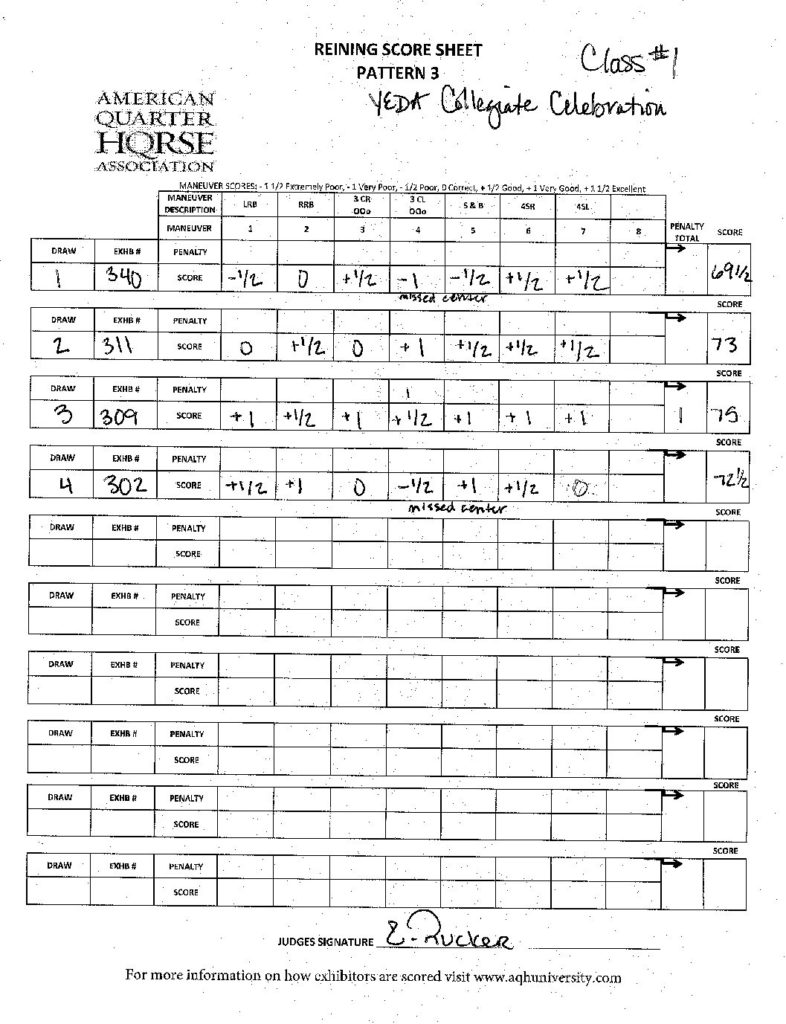 REINING SCORE SHEET
PATTERN 3
Class #1
YEDA Collegiate Celebration
AMERICAN
QUARTER
HORSE
ASSOCIATION
MANEUVER SCORES: - 1 1/2 Extremely Poor, - 1 Very Poor, - 1/2 Poor, 0 Correct, + 1/2 Good, + 1 Very Good, + 1 1/2 Excellent
MANEUVER DESCRIPTION LRB RRB 3 CR OOo 3 CL OOo S & B 4SR 4SL
MANEUVER 1 2 3 4 5 6 7 8 PENALTY TOTAL SCORE
DRAW EXHB # PENALTY
1 340 SCORE -1/2 0 +1/2 -1 -1/2 +1/2 +1/2 69 1/2
missed center
SCORE
DRAW EXHB # PENALTY
2 311 SCORE 0 +1/2 0 +1 +1/2 +1/2 +1/2 73
SCORE
DRAW EXHB # PENALTY 1
3 309 SCORE +1 +1/2 +1 +1/2 +1 +1 +1 1 75
SCORE
DRAW EXHB # PENALTY
4 302 SCORE +1/2 +1 0 -1/2 +1 +1/2 0 72 1/2
missed center
SCORE
DRAW EXHB # PENALTY
SCORE
SCORE
DRAW EXHB # PENALTY
SCORE
SCORE
DRAW EXHB # PENALTY
SCORE
SCORE
DRAW EXHB # PENALTY
SCORE
SCORE
DRAW EXHB # PENALTY
SCORE
SCORE
DRAW EXHB # PENALTY
SCORE
JUDGES SIGNATURE E. Rucker
For more information on how exhibitors are scored visit www.aqhuniversity.com